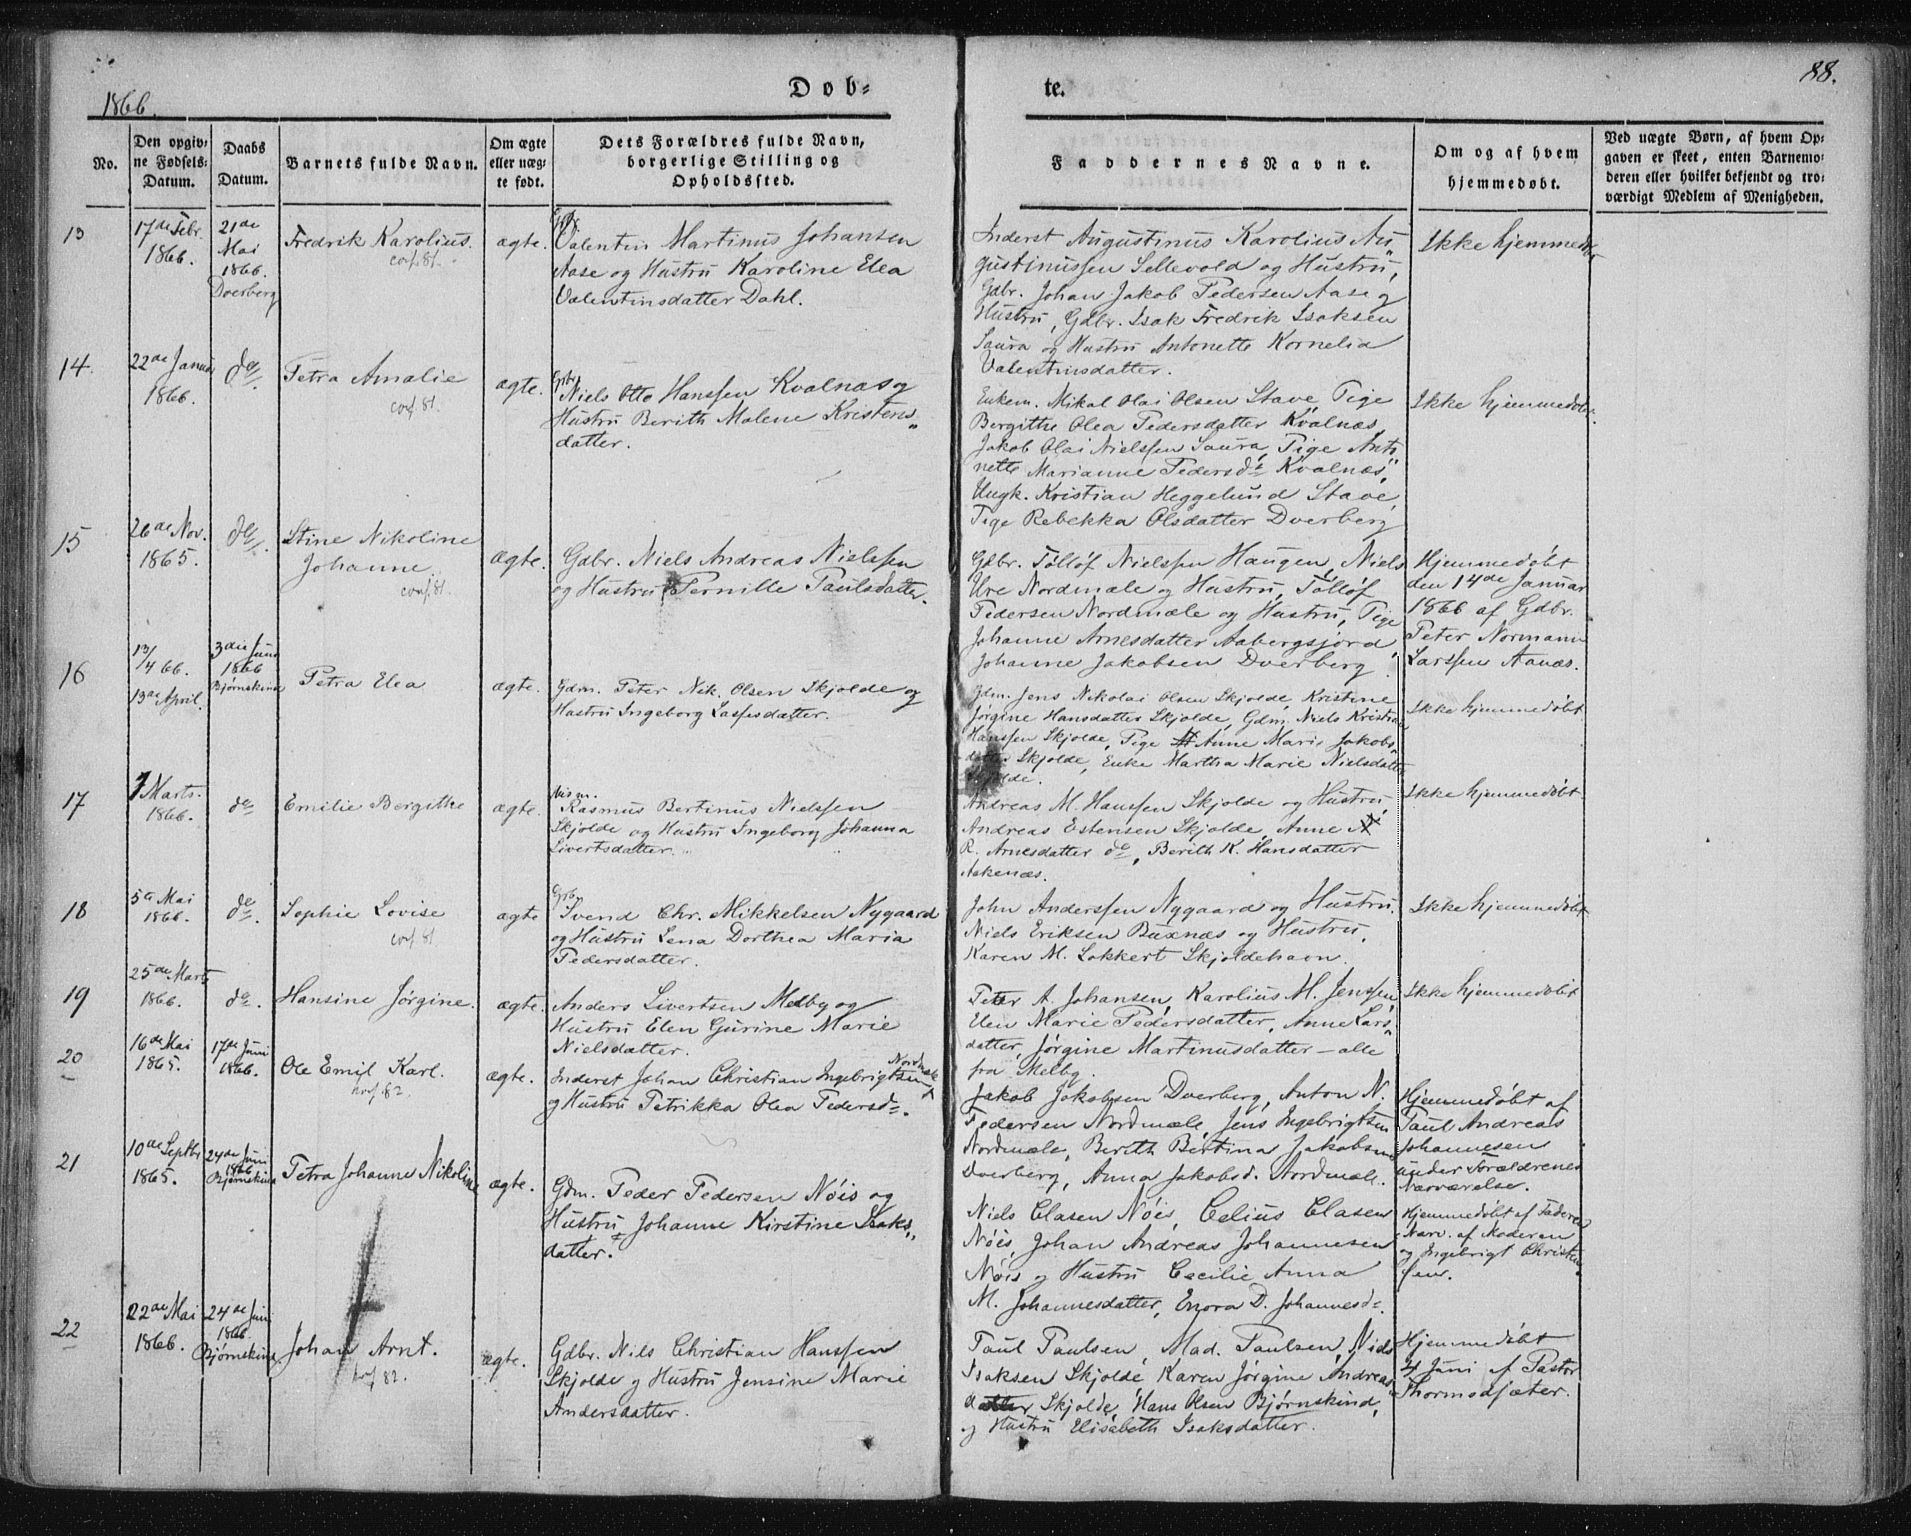 1866.
Døb-
te.
88.
No.
Den opgiv-
ne Fødsels-
Datum.
Daabs
Datum.
Barnets fulde Navn.
Om ægte
eller uæg-
te født.
Dets Forældres fulde Navn,
borgerlige Stilling og
Opholdssted.
Faddernes Navne.
Om og af hvem
hjemmedøbt.
Ved uægte Børn, af hvem Op-
gaven er skeet, enten Barnemo-
deren eller hvilket bekjendt og tro-
værdigt Medlem af Menigheden.
13
17de Febr.
1866.
21de
Mai
1866.
Dverberg
Fredrik Karolius.
conf. 81.
ægte.
Gdbr.
Valentin Martinus Johansen
Aase og Hustru Karoline Elea
Valentinsdatter Dahl.
Inderst Augustinus Karolius Au„
gustinussen Sellevold og Hustru,
Gdbr. Johan Jakob Pedersen Aase og
Hustru, Gdbr. Isak Fredrik Isaksen
Saura og Hustru Antonette Kornelia
Valentinsdatter.
Ikke hjemmedøbt
14.
22de Januar
1866.
do.
Petra Amalie
conf. 81.
ægte.
Gdbr.
Niels Otto Hanssen Kvalnæs og
Hustru Berith Malene Kristens„
datter.
Enkem. Mikal Olai Olsen Stave, Pige
Bergithe Olea Pedersdatter Kvalnæs,
Jakob Olai Nielssen Saura, Pige Anto
nette Marianne Pedersdr Kvalnæs,
Ungk. Kristian Heggelund Stave,
Pige Rebekka Olsdatter Dverberg
Ikke hjemmedøbt.
15
26de Nov.
1865.
do.
Stine Nikoline
Johanne.
conf. 81.
ægte.
Gdbr. Niels Andreas Nielssen
og Hustru Pernille Paulsdatter.
Gdbr. Tølløf Nielssen Haugen, Niels
Ure Nordmæle og Hustru, Tølløf
Pedersen Nordmæle og Hustru, Pige
Johanne Arnesdatter Aabergsjord,
Johanne Jakobsen Dverberg
Hjemmedøbt
den 14de Januar
1866 af Gdbr.
Peter Normann
Larssen Aanæs.
16
13/4 66.
13de April.
3die Juni
1866
Bjørnskind
Petra Elea
ægte.
Gdm. Peter Nik. Olsen Skjolde og
Hustru Ingeborg Lassesdatter.
Gdm. Jens Nikolai Olsen Skjolde, Kristine
Jørgine Hansdatter Skjolde, Gdm. Niels Kristian
Hanssen Skjolde, Pige Anne Marie Jakobs„
datter Skjolde, Enke Martha Marie Nielsdatter
Skjolde.
Ikke hjemmedøbt
17
7 Marts
1866.
do
Emilie Bergithe
ægte.
Husm.
Rasmus Bertinus Nielssen
Skjolde og Hustru Ingeborg Johanna
Sivertsdatter.
Andreas M. Hanssen Skjolde og Hustru,
Andreas Estensen Skjolde, Anne
R. Arnesdatter do, Berith K. Hansdatter
Aakenæs.
Ikke hjemmedøbt
18
5te Mai
1866.
do.
Sophie Lovise
conf. 81
ægte
Gdbr.
Svend Chr. Mikkelsen Nygaard
og Hustru Lena Dorthea Maria
Pedersdatter.
John Anderssen Nygaard og Hustru,
Niels Eriksen Buxnæs og Hustru,
Karen M. Lokkert Skjoldehavn.
Ikke hjemmedøbt
19
25de Marts
1866.
do.
Hansine Jørgine.
ægte.
Anders Sivertsen Melby og
Hustru Elen Gurine Marie
Nielsdatter.
Peter A. Johansen, Karolius M. Jenssen,
Elen Marie Pedersdatter, Anne Lars„
datter, Jørgine Martinusdatter – alle
fra Melby.
Ikke hjemmedøbt
20
16de Mai
1865.
17de Juni
1866.
Ole Emil Karl.
konf 82.
ægte.
Inderst Johan Christian Ingebrigtsen Nordmæle
og Hustru Petrikka Olea Pedersdr.
Jakob Jakobsen Dverberg, Anton N.
Pedersen Nordmæle, Jens Ingebrigtsen
Nordmæle, Berith Bertina Jakobsen
Dverberg, Anna Jakobsd. Nordmæle.
Hjemmedøbt af
Paul Andreas
Johannesen
under Forældrenes
Nærværelse.
21
10de Septbr
1865.
24de Juni
1866,
Bjørnskind
Petra Johanne Nikoline
ægte.
Gdm. Peder Pedersen Nøis og
Hustru Johanne Kirstine Isaks„
datter.
Niels Clasen Nøis, Celius Clasen
Nøis, Johan Andreas Johannesen
Nøis og Hustru Cecilie Anna
M. Johannesdatter, Enora D. Johannesdr.
Hjemmedøbt af Faderen
Nærv. af Moderen
og Ingebrigt Christen
sen.
22
22de Mai
1866.
24de Juni
1866,
Bjørnskind.
Johan Arnt.
konf 82.
ægte.
Gdbr. Nils Christian Hanssen
Skjolde og Hustru Jensine Marie
Andersdatter.
Paul Paulsen, Mad. Paulsen, Niels
Isaksen Skjolde, Karen Jørgine Andreas„
datter Skjolde, Hans Olsen Bjørnskind,
og Hustru Elisabeth Isaksdatter.
Hjemmedøbt
4 Juni af Pastor
Thormodsæter.